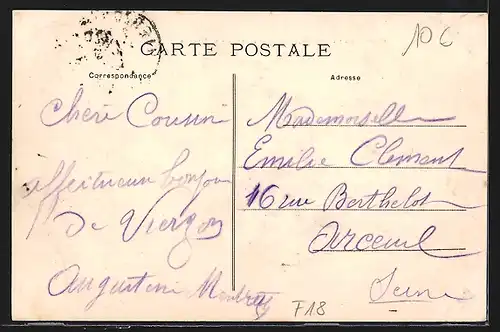 CARTE POSTALE
10 €
Correspondance
Adresse
Chère Cousine
affectueux bonjour
de Vierzon
Augustine
Mademoiselle
Emilie Clement
16 rue Berthelot
Arceuil
Seine
F18